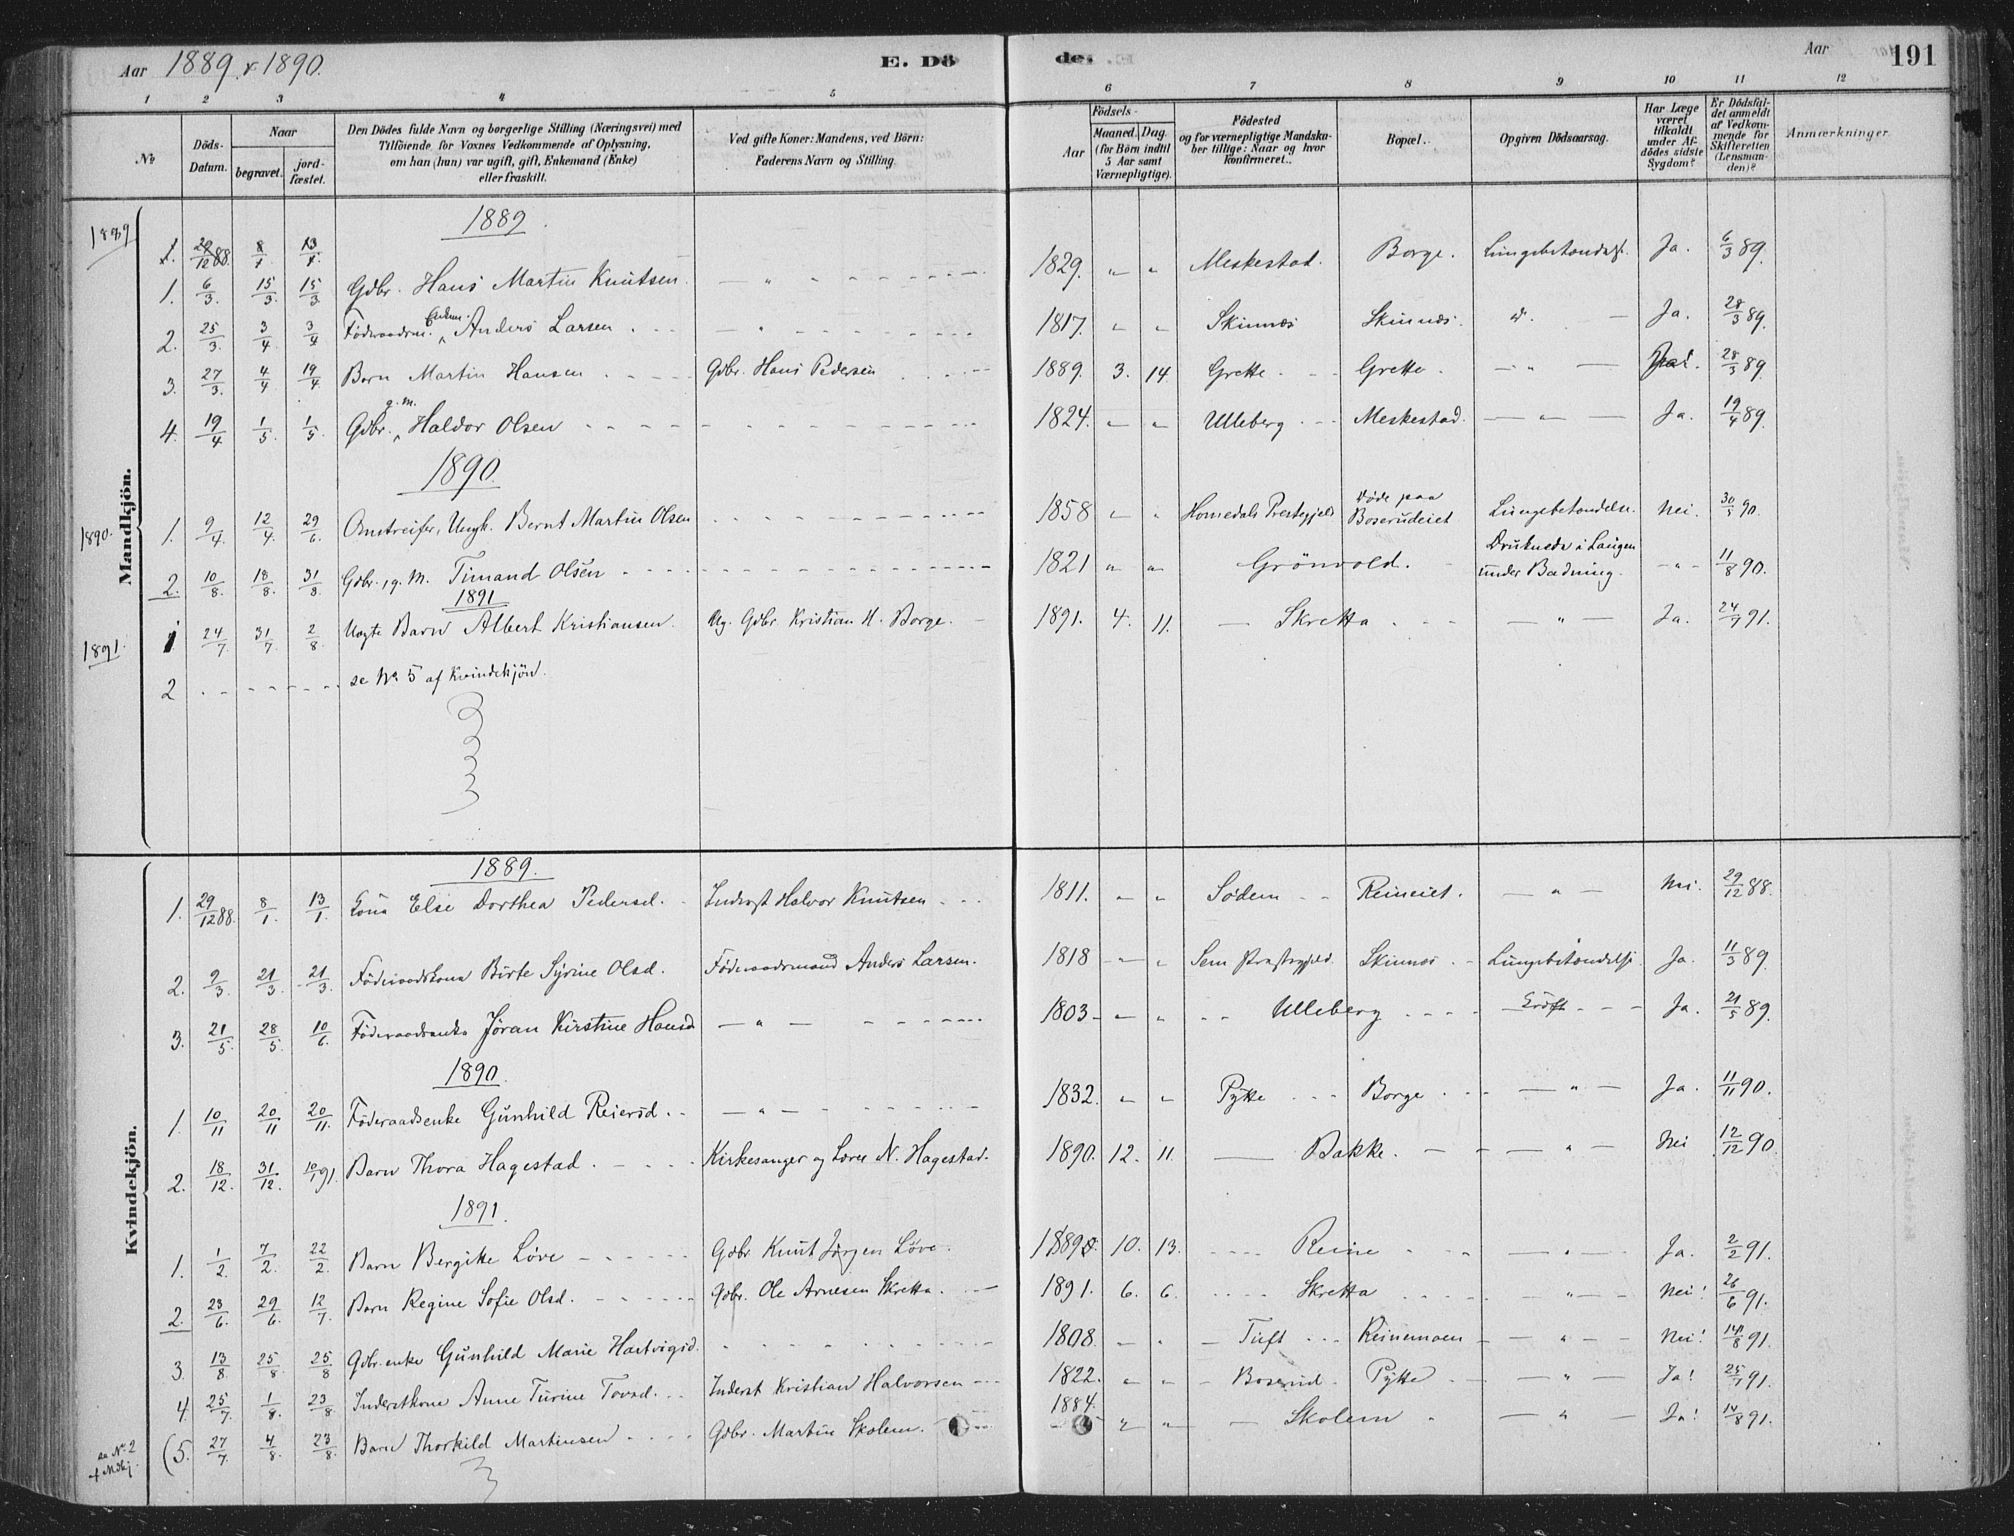 Aar 1889 & 1890.
E. Dö
de.
Aar
191
1 2 3 4 5 6 7 8 9 10 11 12
No
Döds-Datum.
Naar
begravet.
jord-fæstet.
Den Dödes fulde Navn og borgerlige Stilling (Næringsvei) med
Tilföiende, for Voxnes Vedkommende af Oplysning,
om han (hun) var ugift, gift, Enkemand (Enke)
eller fraskilt.
Ved gifte Koner: Mandens, ved Börn:
Faderens Navn og Stilling.
Födsels-
Aar
Maaned. Dag.
(for Börn indtil
5 Aar samt
Værnepligtige).
Födested
og for værnepligtige Mandska-
ber tillige: Naar og hvor
konfirmeret..
Bopæl..
Opgiven Dödsaarsag.
Har Læge
været
tilkaldt
under Af-
dödes sidste
Sygdom?
Er Dödsfal-
det anmeldt
af Vedkom-
mende for
Skifteretten
(Lensman-
den)?
Anmærkninger
Mandkjön.
1889
1889.
1. 29/12 88. 8/1 13/1
1. 6/3. 15/3. 15/3. Gdbr. Hans Martin Knutsen. — " — 1829. " " Meskestad. Borge. Lungebetændelse. Ja. 6/3 89.
2. 25/3. 3/4 3/4 Föderaadm. Enkem. Anders Larsen — " — 1817. " " Skinnes Skinnes. d. — Ja. 28/3 89.
3. 27/3. 4/4 19/4. Barn Martin Hansen Gdbr. Hans Pedersen 1889. 3. 14. Grette Grette — " — 28/3 89.
4. 19/4 1/5. 1/5. Gdbr. g.m. Haldor Olsen 1824. " " Ulleberg Meskestad. — " — Ja. 19/4 89.
1890.
1890.
1. 9/4. 12/4. 29/6 Omstreifer, Ungk. Bernt Martin Olsen 1858 " " Homedals Prestegjeld Döde paa Boserudeiet Lungebetændelse. Nei. 30/5 90.
2. 10/8. 18/8. 31/8. Gdbr. g. M. Timand Olsen 1821 " " Grönvold. Druknede i Laugen under Badning. — " — 11/8 90.
1891
1891.
1 24/7. 31/7. 2/8 Uægte Barn Albert Kristiansen. Ug. Gdbr. Kristian H. Borge. 1891. 4. 11. — Skretta — " — Ja. 24/7 91.
2 se No 5 af Kvindekjön.
Kvindekjön.
1889.
1. 29/12 88. 8/1. 13/1. Kona Else Dorthea Pedersd. Inderst Halvor Knutsen 1811. " " Södem Reineiet. — " — Nei. 29/12 88.
2. 9/3. 21/3. 21/3. Föderaadskona Birte Syrine Olsd. Föderaadsmand Anders Larsen. 1818 — " Sem Prestegjeld. Skinnes Lungebetændelse. Ja. 11/3 89.
3. 21/5. 28/5. 10/6. Föderaadsenke Joran Kirstine Hansd — " — 1803 — " Ulleberg Ja. 21/5 89.
1890.
1. 10/11 20/11 20/11. Föderaadsenke Gunhild Reiersd. — " — 1832. " " Pytte Borge — " — Ja. 11/11 90.
2. 18/12. 31/12. 10/1 91. Barn Thora Hagestad. Kirkesanger og Lærer N. Hagestad. 1890. 12. 11. — Bakke. — " — Nei 12/12 90.
1891.
1. 1/2. 7/2. 22/2. Barn Bergitte Löve Gdbr. Knut Jörgen Löve. 1889. 10. 13. Reine — " — Ja. 2/2 91.
2. 23/6. 29/6. 12/7. Barn Regine Sofie Olsd. Gdbr. Ole Arnesen Skretta. 1891. 6. 6. Skretta — " — Nei! 26/6 91.
3. 13/8. 25/8. 25/8 Gdbr.enke Gunhild Marie Hartvigsd. 1808. — " Tuft Reinemoen — " — Nei! 14/8 91.
4. 25/7. 1/8. 23/8. Inderstkone Anne Turine Tovsd. Inderst Kristian Halvorsen 1822. " " Boserud Pytte — " — Ja! 25/7 91.
se No 2 f Mdkj. (5. 27/7. 4/8. 23/8. Barn Thorkild Martinsen Gdbr. Martin Skolem. 1884. " " — Skolem — " — Ja! 14/8 91.